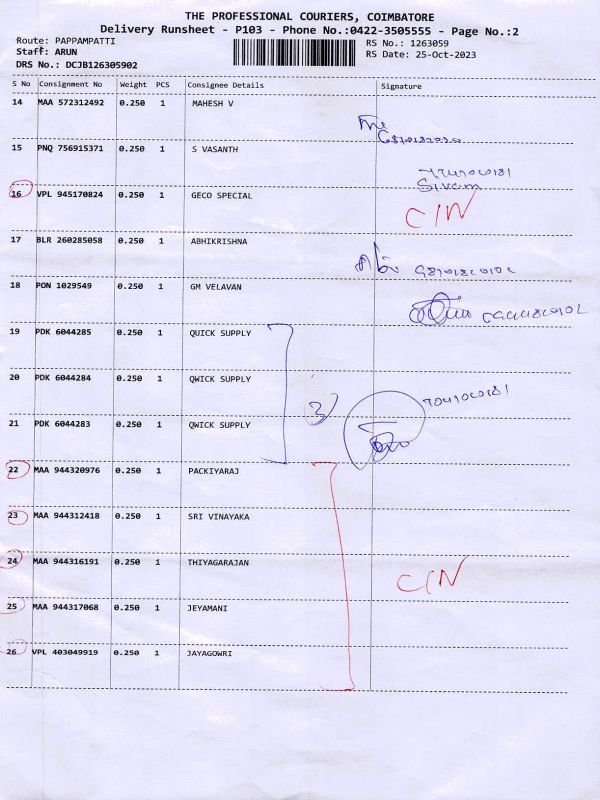 THE PROFESSIONAL COURIERS, COIMBATORE
Delivery Runsheet - P103 - Phone No.:0422-3505555 - Page No.:2
Route: PAPPAMPATTI
Staff: ARUN
DRS No.: DCJB126305902
RS No.: 1263059
RS Date: 25-Oct-2023
S No Consignment No Weight PCS Consignee Details Signature
14 MAA 572312492 0.250 1 MAHESH V
15 PNQ 756915371 0.250 1 S VASANTH
Sivam
16 VPL 945170824 0.250 1 GECO SPECIAL
C/N
17 BLR 260285058 0.250 1 ABHIKRISHNA
18 PON 1029549 0.250 1 GM VELAVAN
19 PDK 6044285 0.250 1 QUICK SUPPLY
20 PDK 6044284 0.250 1 QWICK SUPPLY
3/
21 PDK 6044283 0.250 1 QWICK SUPPLY
22 MAA 944320976 0.250 1 PACKIYARAJ
23 MAA 944312418 0.250 1 SRI VINAYAKA
24 MAA 944316191 0.250 1 THIYAGARAJAN
C/N
25 MAA 944317068 0.250 1 JEYAMANI
26 VPL 403049919 0.250 1 JAYAGOWRI